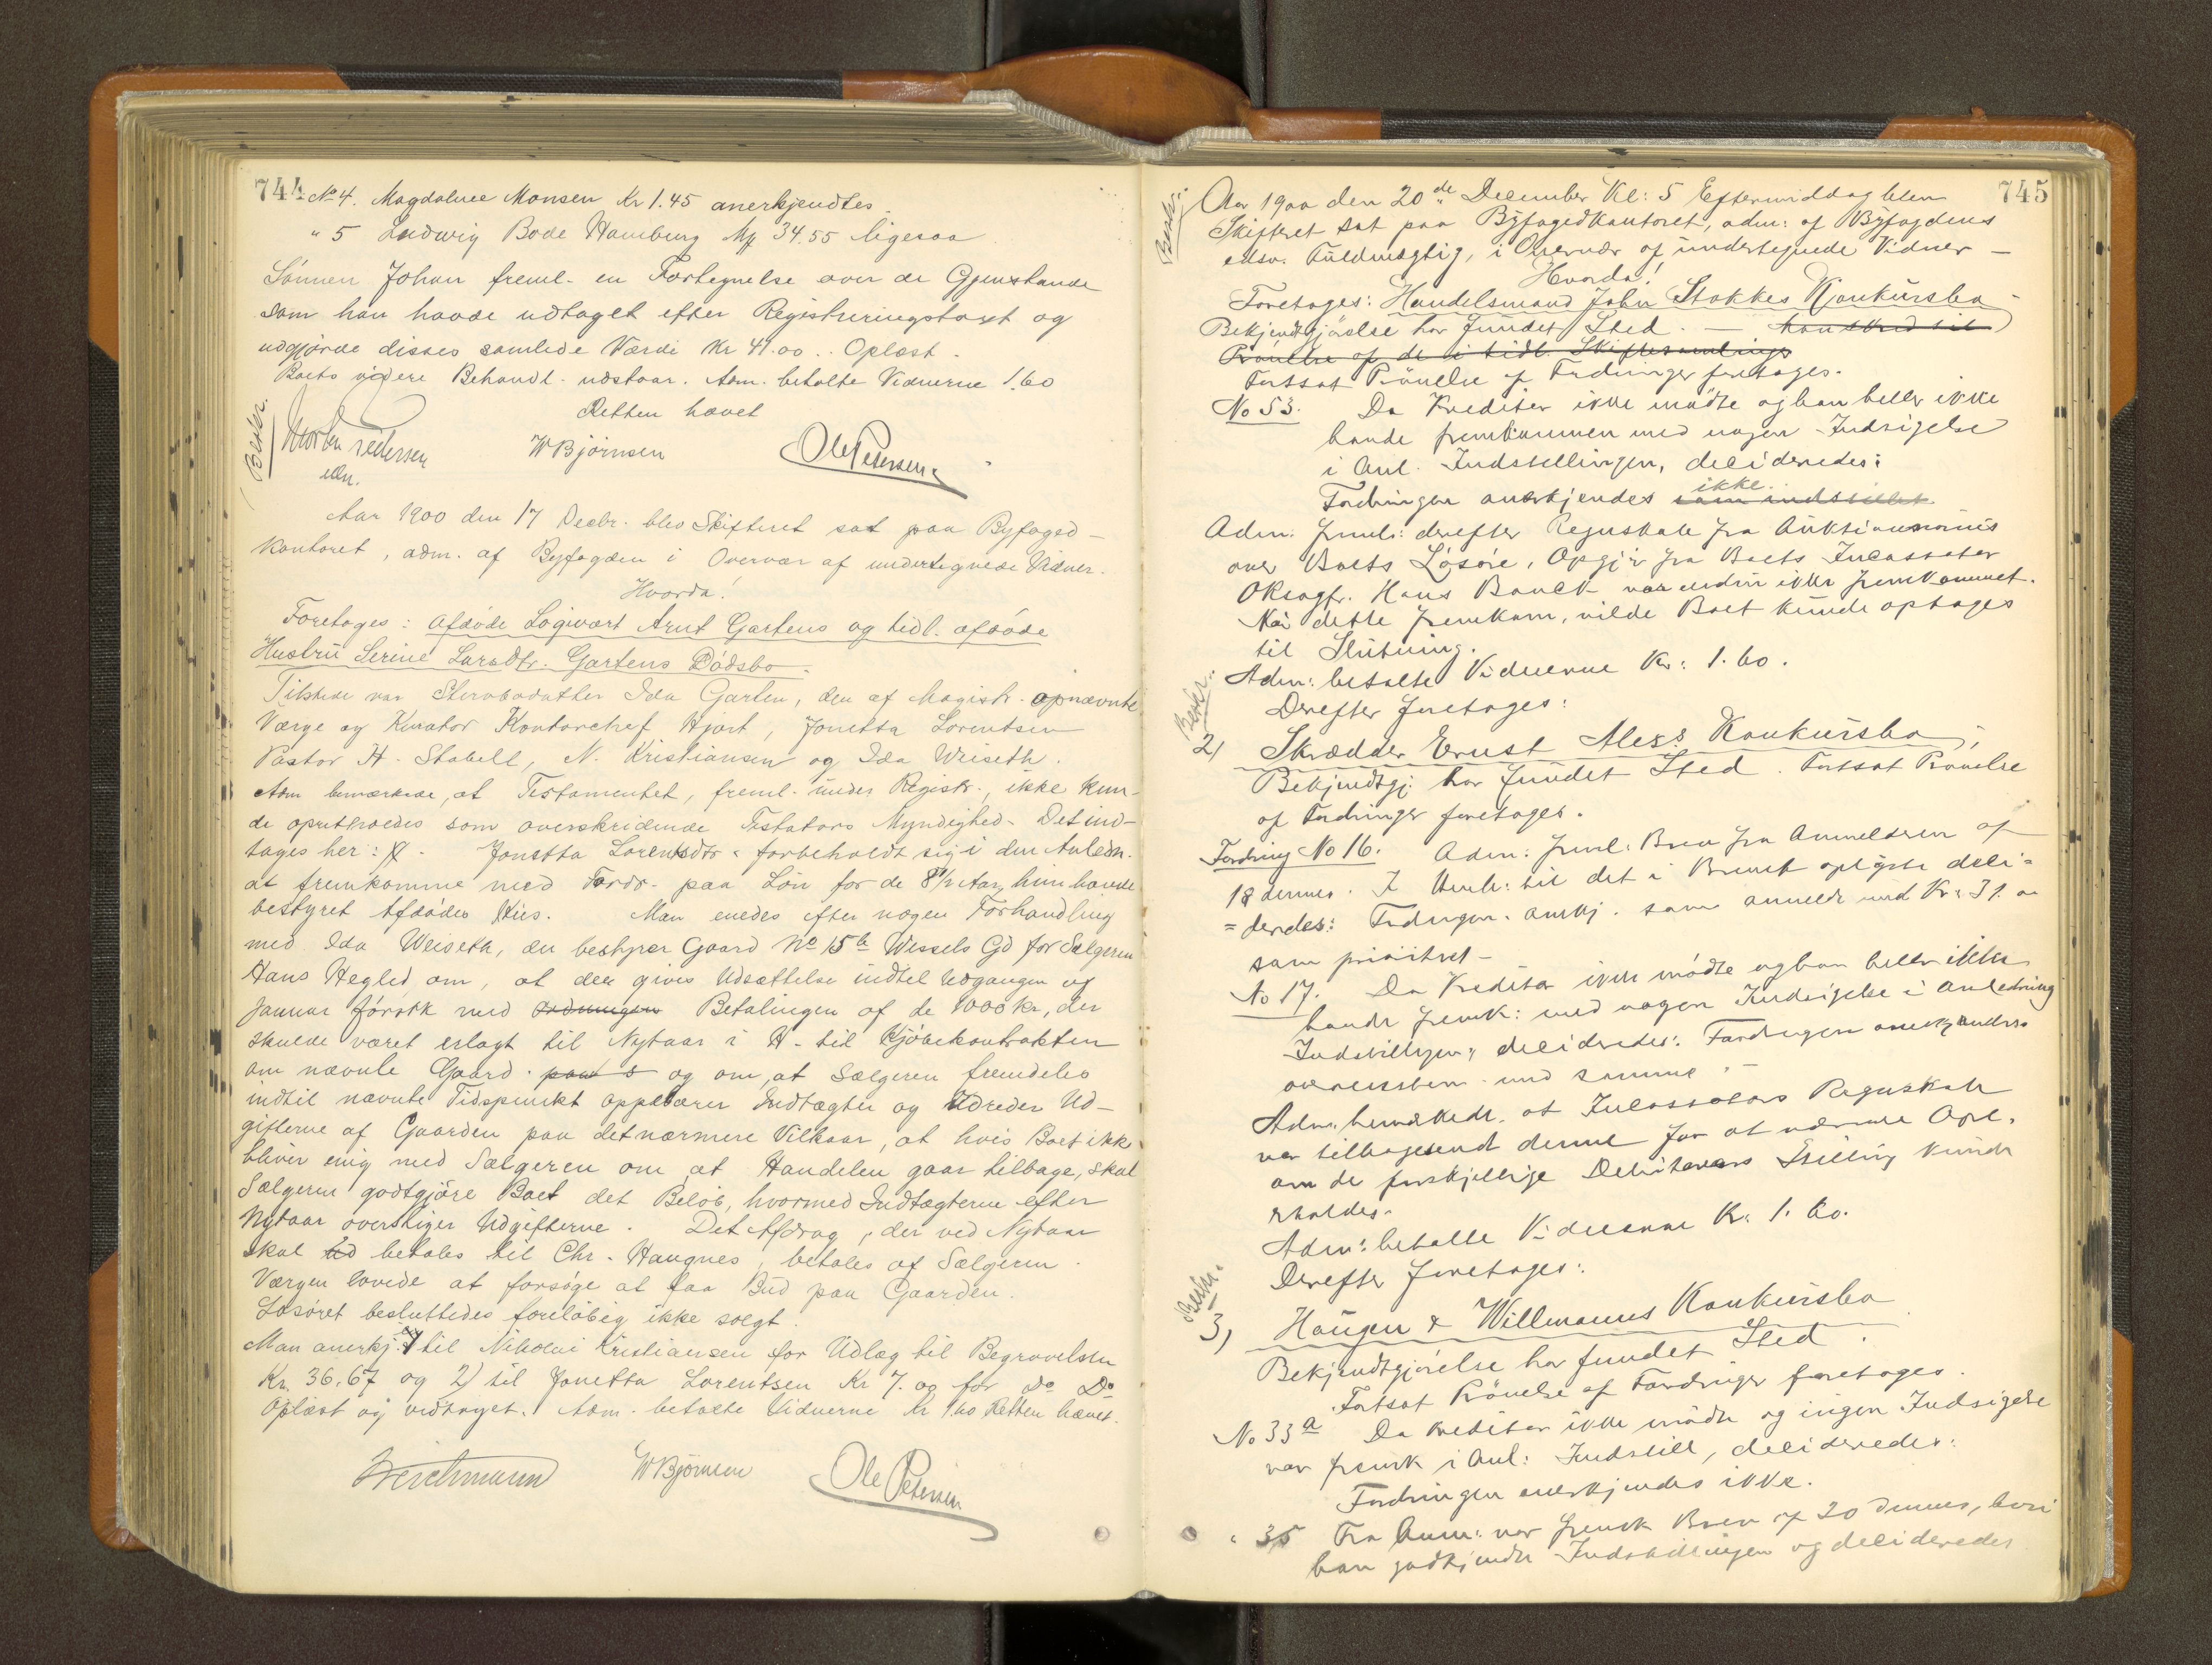 744
No 4. Magdalene Monsen Kr 1.45 anerkjendtes.
" 5 Ludwig Bode Hamburg Mk 34.55 ligesaa
Sønnen Johan freml. en Fortegnelse over de Gjenstande
som han havde udtaget efter Registreringstaxt og
udgjørde disses samlede Værdi Kr 41.00. Oplæst.
Boets videre Behandl. udstaar. Adm. betalte Vidnerne 1.60
Retten hævet
Beskr.
Morten Pedersen
edsv.
W Bjørnsen
Ole Petersen
Aar 1900 den 17 Decbr. blev Skifteret sat paa Byfoged-
kontoret, adm. af Byfogden i Overvær af undertegnede Vidner.
Hvorda!
Foretoges: Afdøde Logivært Arnt Gartens og tidl. afdøde
Hustru Serine Larsdtr. Gartens Dødsbo.
Tilstede var Stervbodatter Ida Garten, den af Magistr. opnævnte
Værge og Kurator Kontorchef Hjort, Jonetta Lorentsen
Pastor H. Stabell, N. Kristiansen og Ida Weiseth.
Adm bemærkede, at Testamentet, freml. under Registr., ikke kun-
de opretholdes som overskridende Testators Myndighed. Det ind-
tages her: Jonetta Lorentsdtr. forbeholdt sig i den Anledn.
at fremkomme med Fordr. paa Løn for de 8 1/2 Aar, hun havde
bestyret Afdødes Hus. Man enedes efter nogen Forhandling
med Ida Weiseth, der bestyrer Gaard No 15 b Wessels Gd for Sælgeren
Hans Hegled om, at der gives Udsættelse indtil Udgangen af
Januar førstk med Ordningen Betalingen af de 1000 kr, der
skulde været erlagt til Nytaar i H. til Kjøbekontrakten
om nævnte Gaard. paa s og om, at Sælgeren fremdeles
indtil nævnte Tidspunkt oppebærer Indtægter og Udreder Ud-
gifterne af Gaarden paa det nærmere Vilkaar, at hvis Boet ikke
bliver enig med Sælgeren om at Handelen gaar tilbage, skal
Sælgeren godtgjøre Boet det Beløb, hvormed Indtægterne efter
Nytaar overstiger Udgifterne. Det Afdrag, der ved Nytaar
skal ud betales til Chr. Haugnes, betales af Sælgeren.
Værgen lovede at forsøge at faa Bud paa Gaarden.
Løsøret besluttedes foreløbig ikke solgt.
Man anerkj. 1) til Nikolai Kristiansen for Udlæg til Begravelsen
Kr. 36.67 og 2) til Jonetta Lorentsen Kr 7.00 for Do Do
Oplæst og vedtaget. Adm. betalte Vidnerne Kr 1.60 Retten hævet.
W Bjørnsen
Ole Petersen
745
Beskr.:
Aar 1900 den 20de December Kl: 5 Eftermiddag blev
Skifteret sat paa Byfogedkontoret, adm: af Byfogdens
edsv. Fuldmægtig, i Overvær af undertegnede Vidner –
Hvorda!
Foretoges: Handelsmand John Stokkes Konkursbo –
Bekjendtgjørelse har fundet Sted. – Man skred til
Prøvelse af de i tidl. Skiftesamlinger
Fortsat Prøvelse af Fordringer foretoges.
No 53. Da Kreditor ikke mødte og han heller ikke
havde fremkommen med nogen Indsigelse
i Anl. Indstillingen, decideredes:
Fordringen anerkjendes som indstillet ikke.
Adm. freml: derefter Regnskab fra Auktionarius
over Boets Løsøre, Opgjør fra Boets Incassator
Oksagf. Hans Bauck var endnu ikke fremkommet.
Når dette fremkom, vilde Boet kunde optages
til Slutning.
Adm: betalte Vidnerne Kr: 1.60.
Beskr.:
Derefter foretoges:
2) Skrædder Ernst Aless Konkursbo;
Bekjendtgj: har fundet Sted. Fortsat Prøvelse
af Fordringer foretoges.
Fordring No 16. Adm: freml. Brev fra Anmelderen af
18 dennes. I Henh: til det i Brevet oplyste deci-
=deredes: Fordringen anerkj. som anmeldt med Kr: 31.00
som prioritet –
No 17. Da Kreditor ikke mødte og han heller ikke
havde fremk: med nogen Indsigelse i Anledning
Indstillingen, decideredes: Fordringen anerkjendes
overensstem. med samme. –
Adm. bemærkede, at Incassators Regnskab
var tilbagesendt denne for at nærmere Opl.
om de forskjellige Debitorers Stilling kunde
erholdes.
Adm: betalte Vidnerne Kr: 1.60.
Derefter foretoges:
Beskr.
3) Haugen & Willmanns Konkursbo
Bekjendtgjørelse har fundet Sted.
Fortsat Prøvelse af Fordringer foretoges.
No 33 a Da Kreditor ikke mødte og ingen Indsigelse
var fremk i Anl: Indstill, decideredes:
Fordringen anerkjendes ikke.
" 35 Fra Anm: var fremk Brev af 20 dennes, hvori
han godkjender Indstillingen og decideredes